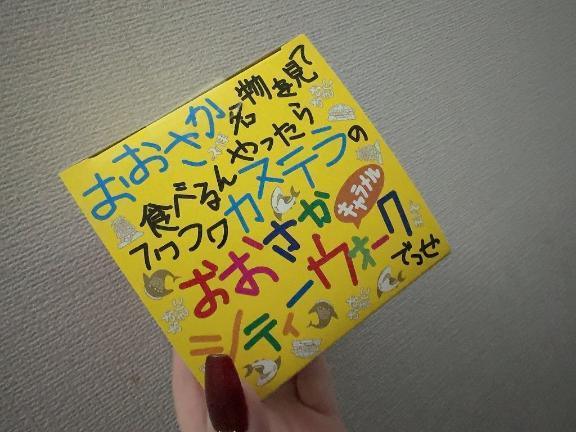 おおさか名物を見て
食べるんやったら
フワフワカステラの
おおさか
キャラメル
シティーウォーク
でっせ